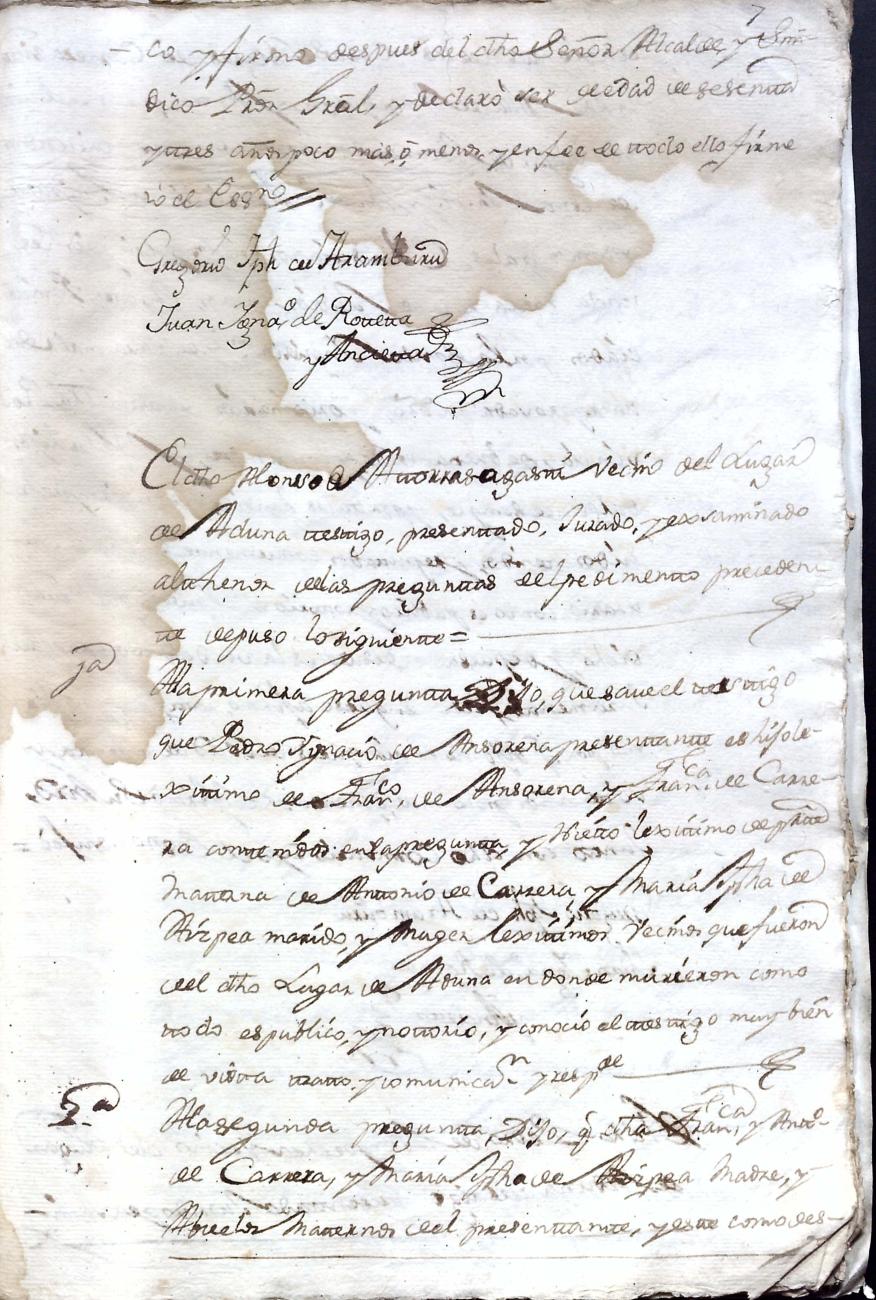 7
co y firmo despues del dho Señor Alcalde y Sin-
dico Pror Gral, y declaró ser de edad de sesenta
y tres años poco mas, ó menos, y en fee de ttodo ello firme
yo el Essno
Gregorio Jph de Aramburu
Juan Ignaº de Rotteta
y Ancietta
El dho Alonso de Attorrasagasti Vecino del Lugar
de Aduna ttestigo, presenttado, Jurado, y exsaminado
al thenor de las pregunttas del pedimentto preceden
tte depuso lo siguientte =
1ª
A la primera preguntta Dijo, que save el ttesttigo
que Pedro Ignacio de Ansorena presenttantte es hijo le-
xittimo de Franco, de Ansorena, y Franca de Carre-
ra conttenidos en la preguntta, y Nietto lexittimo de partte
Matterna de Anttonio de Carrera y Maria Jpha de
Aizpea marido, y Muger lexittimos Vecinos que fueron
del dho Lugar de Aduna en donde murieron como
ttodo es publico, y nottorio, y conoció el ttesttigo muy bien
de vistta tratto, y comunicaon y respde
2ª
A la segunda preguntta, Dijo, q dha Franca, y Antto
de Carrera, y Maria Jpha de Aizpea Madre, y
Abuelos Matternos del presenttantte, y estte como des-